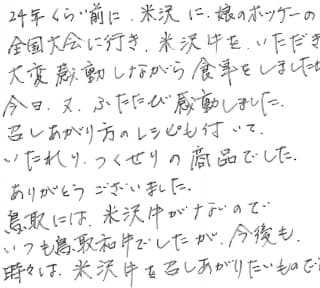 24年くらい前に、米沢に、娘のホッケーの
全国大会に行き、米沢牛を、いただき
大変感動しながら食事をしました
今日、又、ふたたび感動しました。
召しあがり方のレシピも付いて、
いたれり、つくせりの商品でした。
ありがとうございました。
鳥取には、米沢牛がないので
いつも鳥取和牛でしたが、今後も、
時々は、米沢牛を召しあがりたいもので